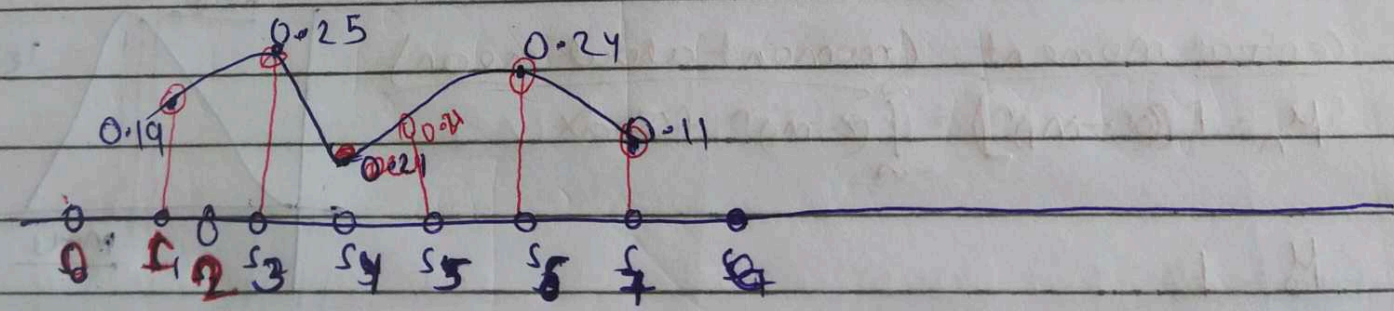 0.25
0.24
0.19
0.21
0.11
0 1 2 S3 S4 S5 S6 S7